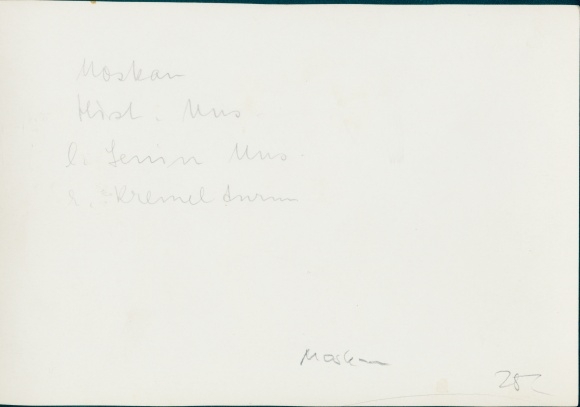 Moskau
Hist. Mus.
l. Lenin Mus.
r. Kremelturm
Moskau